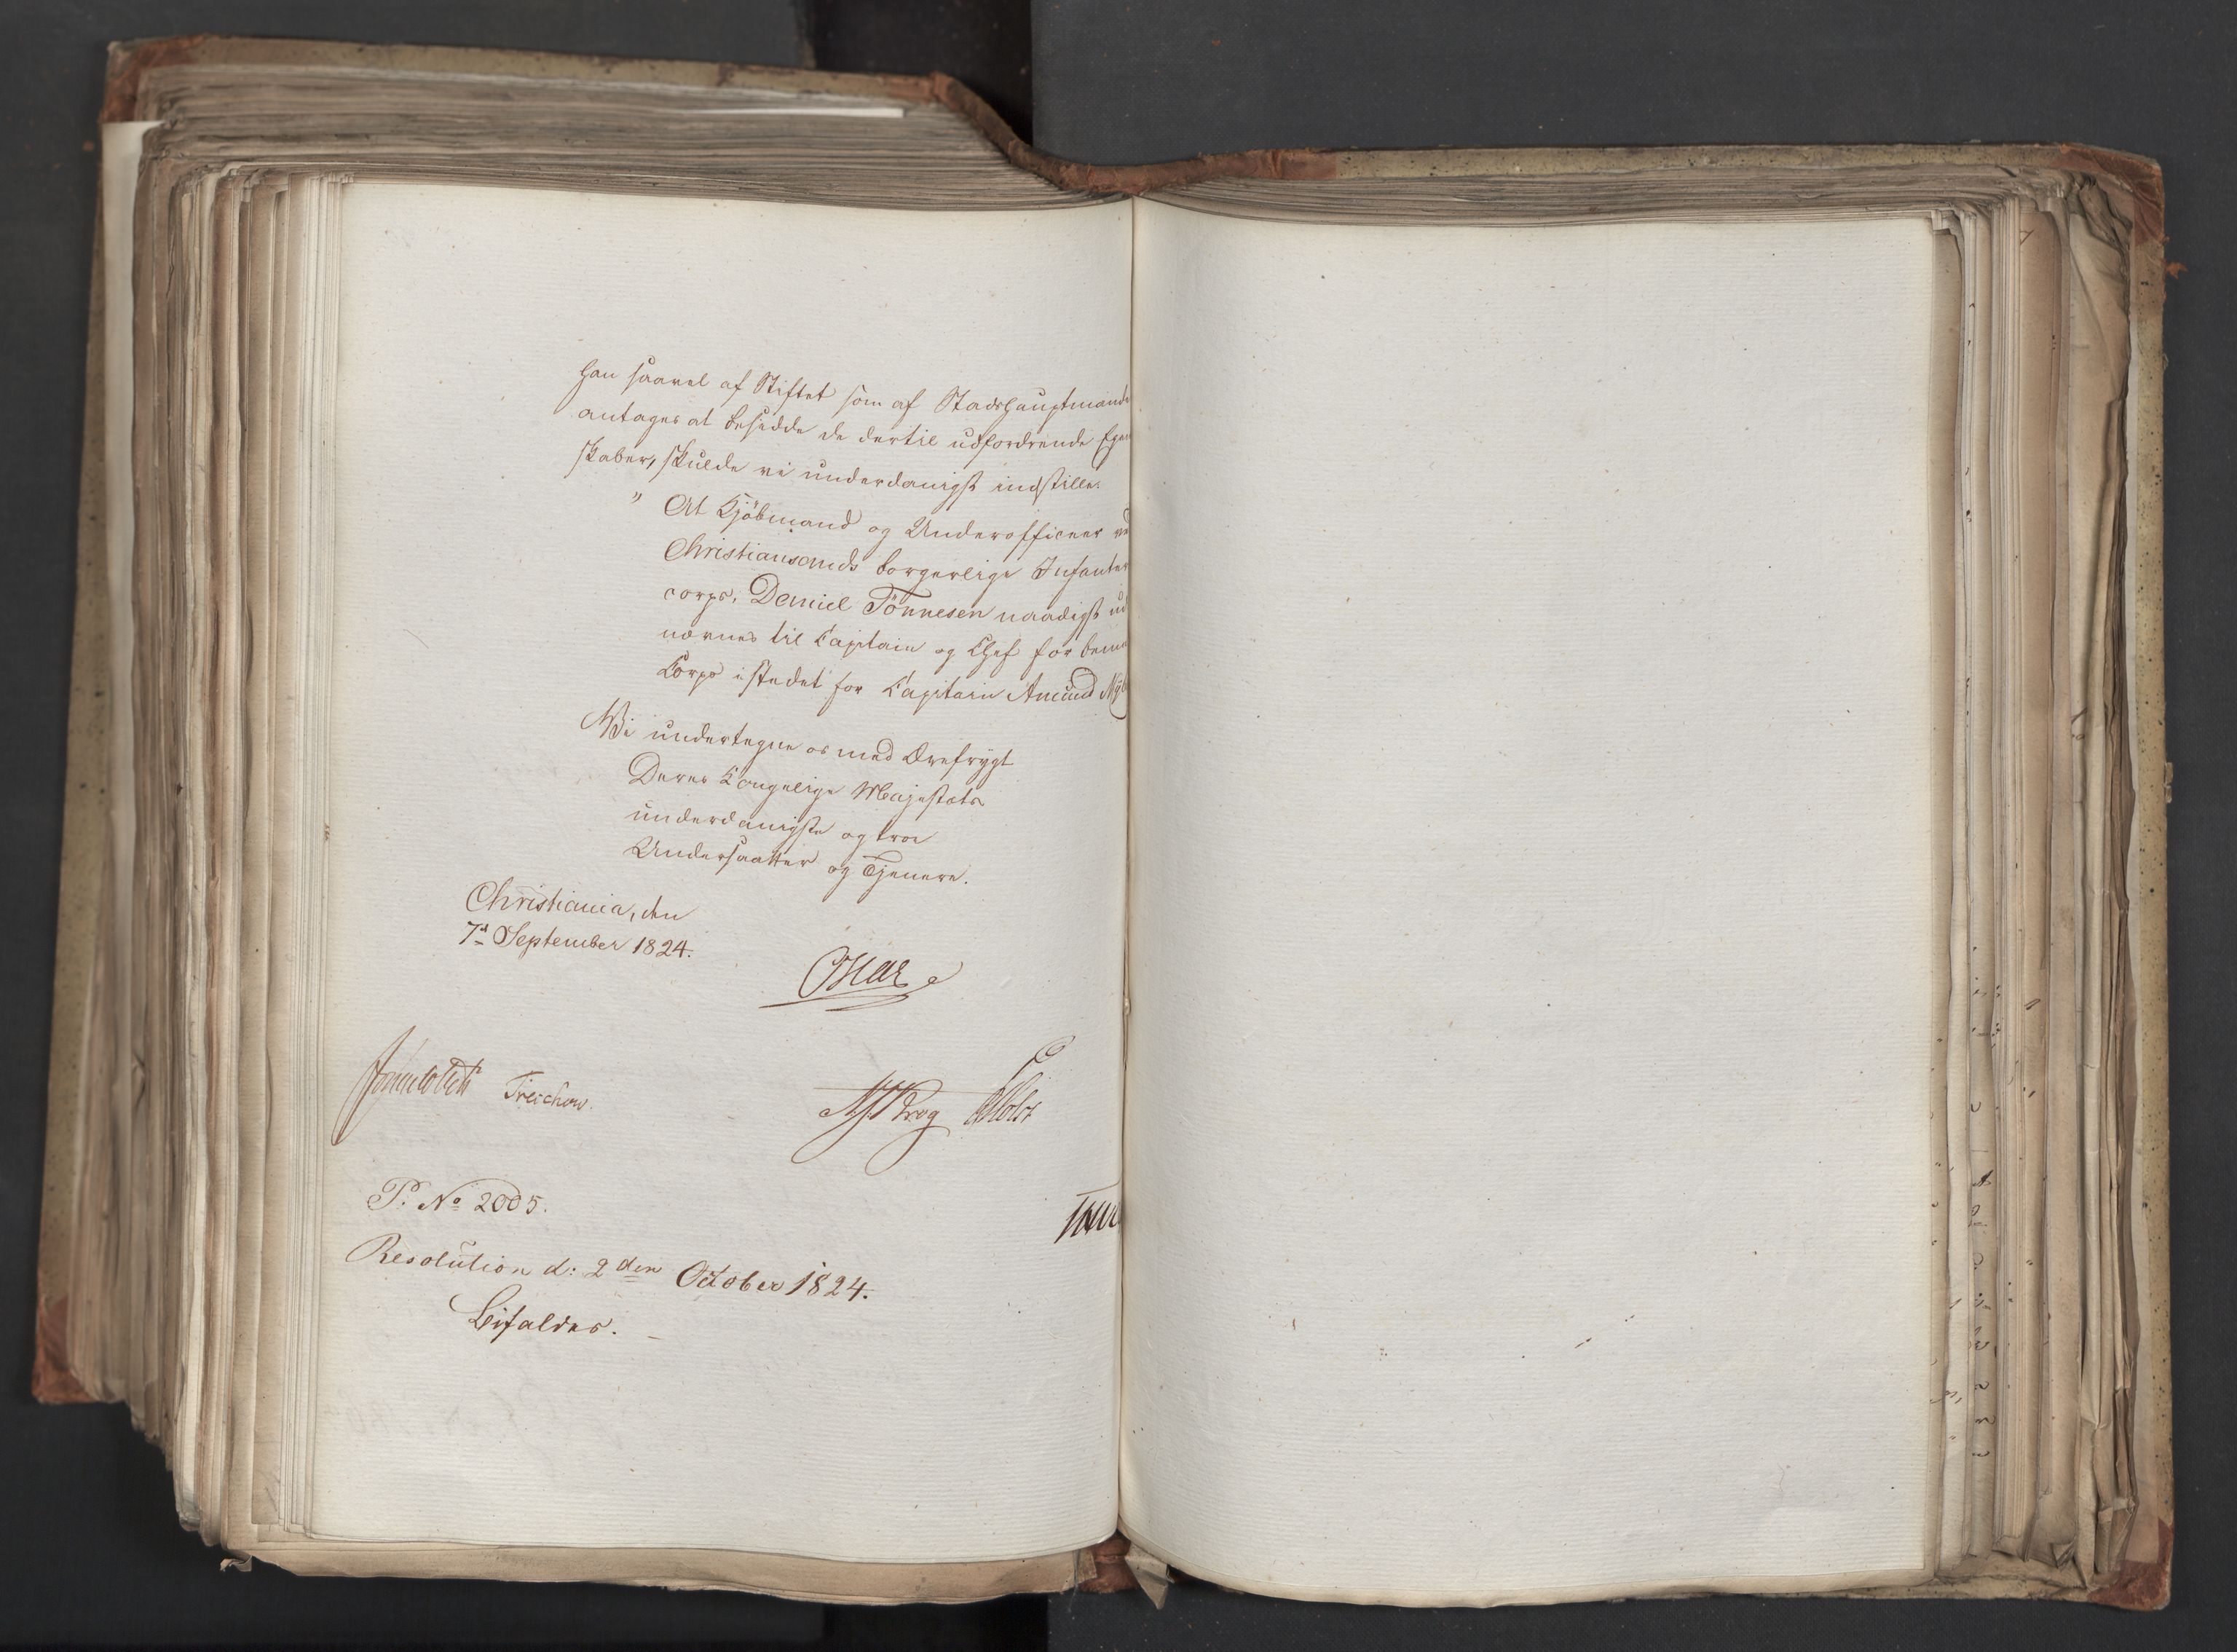 han saavel af Stiftet som af Stadshauptmand
antages at besidde de dertil udfordrende Egen
skaber, skulde vi underdanigst indstille:
" At Kjöbmand og Underofficeer ved
Christiansands borgerlige Infanter
corps, Daniel Tönnesen naadigst ud
nævnes til Capitain og Chef for benæ
Corps istedet for Capitain Amund
Vi undertegne os med Ærefrygt
Deres Kongelige Majestæts
underdanigste og troe
Undersaatter og Tjenere.
Christiania, den
7d September 1824.
Oscar
Sommerhielm Treschow.
Krog Holst
P: No 2005.
Resolution d: 2den October 1824.
Bifaldes.